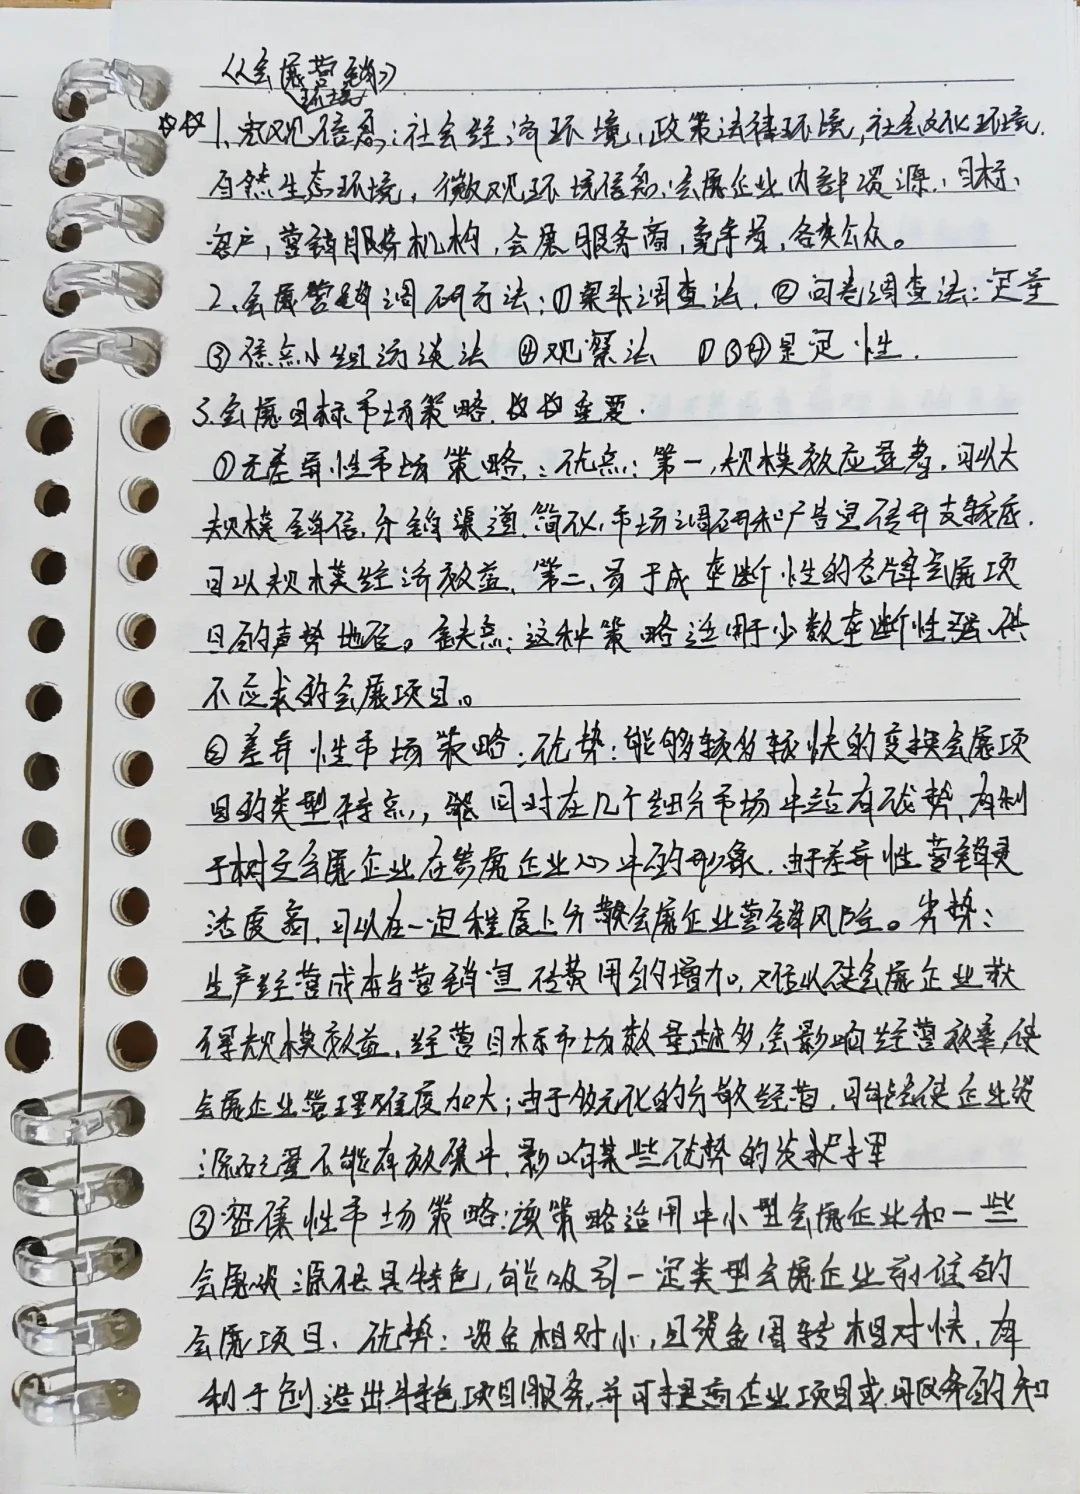 《会展营销》
环境
☆☆1、宏观信息:社会经济环境,政策法律环境,社会文化环境.
自然生态环境,微观环境信息:会展企业内部资源、目标、
客户,营销服务机构,会展服务商,竞争者,各类公众。
2、会展营销调研方法:①案头调查法,②问卷调查法:定量
③焦点小组访谈法 ④观察法 ①③④是定性.
3.会展目标市场策略.☆☆重要.
①无差异性市场策略:优点:第一,规模效应显著,可以大
规模销售,分销渠道简化,市场调研和广告宣传开支较底.
可以规模经济效益,第二、易于成垄断性的名牌会展项
目的声势地位。缺点:这种策略适用于少数垄断性强、供
不应求的会展项目。
②差异性市场策略:优势:能够较多较快的变换会展项
目的类型特点,能同时在几个细分市场中占有优势,有利
于树立会展企业在参展企业心中的形象.由于差异性营销灵
活度高,可以在一定程度上分散会展企业营销风险。劣势:
生产经营成本与营销宣传费用的增加,难以使会展企业获
得规模效益,经营目标市场数量越多,会影响经营效率,使
会展企业管理难度加大;由于多元化的分散经营,可能会使企业资
源配置不能有效集中,影响某些优势的发挥
③密集性市场策略:该策略适用中小型会展企业和一些
会展资源独具特色,能吸引一定类型会展企业前往的
会展项目、优势:资金相对小,且资金周转相对快,有
利于创造出特色项目服务,并可提高企业项目或服务的知